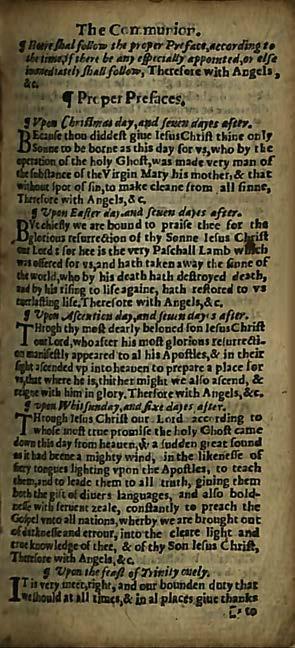 The Communion.
¶ Here shal follow the proper Preface, according to
the time, if there be any especially appointed, or else
immediately shall follow, Therefore with Angels,
&c.
¶ Proper Prefaces.
¶ Vpon Christmas day, and seuen dayes after.
BEcause thou diddest giue Iesus Christ thine only
Sonne to be borne as this day for vs, who by the
operation of the holy Ghost, was made very man of
the substance of the Virgin Mary his mother, & that
without spot of sin, to make cleane from all sinne,
Therfore with Angels, &c.
¶ Vpon Easter day, and seuen dayes after.
BVt chiefly we are bound to praise thee for the
glorious resurrectiō of thy Sonne Iesus Christ
our Lord: for hee is the very Paschall Lamb which
was offered for vs, and hath taken away the sinne of
the world, who by his death hath destroyed death,
and by his rising to life againe, hath restored to vs
euerlasting life. Therefore with Angels, &c.
¶ Vpon Ascention day, and seuen dayes after.
THrogh thy most dearly beloued son Iesus Christ
our Lord, who after his most glorious resurrecti-
on manifestly appeared to al his Apostles, & in their
sight ascended vp into heauen to prepare a place for
vs, that where he is, thither might we also ascend, &
reigne with him in glory. Therfore with Angels, &c.
¶ vpon Whitsunday, and sixe dayes after.
THrough Iesus Christ our Lord according to
whose most true promise the holy Ghost came
down this day from heauen, & a sudden great sound
as it had beene a mighty wind, in the likenesse of
fiery tongues lighting vpon the Apostles, to teach
them, and to leade them to all truth, giuing them
both the gift of diuers languages, and also bold-
nesse with feruent zeale, constantly to preach the
Gospel vnto all nations, wherby we are brought out
of darknesse and errour, into the cleare light and
true knowledge of thee, & of thy Son Iesus Christ,
Therfore with Angels, &c.
¶ Vpon the feast of Trinity onely.
IT is very meet, right, and our bounden duty that
we should at all times, & in al places giue thanks
to